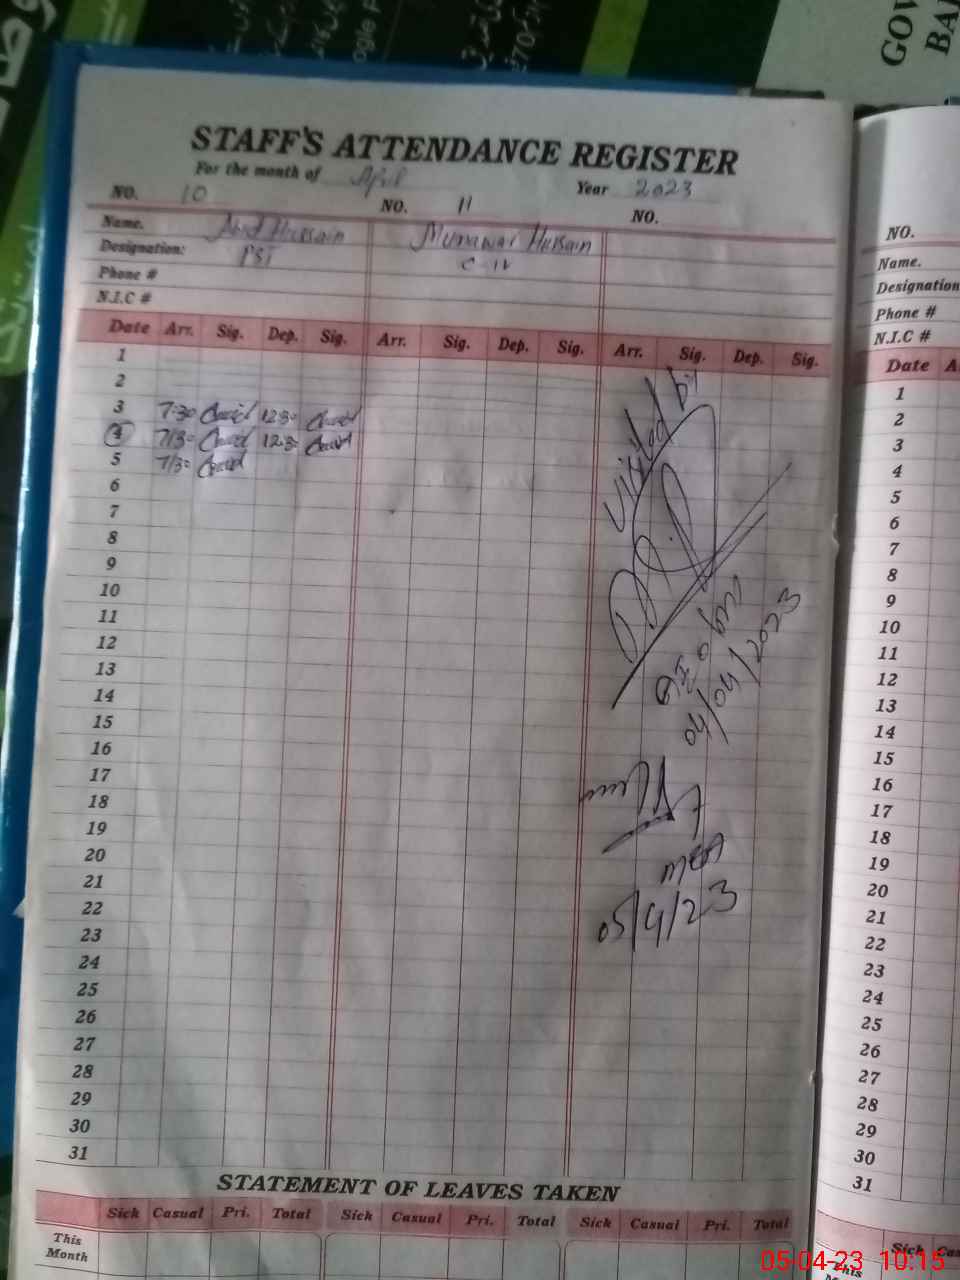 GOV
BA
STAFF'S ATTENDANCE REGISTER
For the month of April Year 2023
NO. 10 NO. 11 NO.
Name. Hussain Munawar Hussain
Designation: PST
Phone #
N.I.C #
Date Arr. Sig. Dep. Sig. Arr. Sig. Dep. Sig. Arr. Sig. Dep. Sig.
1
2
3 7:30 12:30
4 7/30 12:30
5 7/30
6
7
8
9
10
11
12
13
14
15
16
17
18
19
20
21
22
23
24
25
26
27
28
29
30
31
visited by
04/04/2023
MEA
05/4/23
STATEMENT OF LEAVES TAKEN
Sick Casual Pri. Total Sick Casual Pri. Total Sick Casual Pri. Total
This
Month
NO.
Name.
Designation
Phone #
N.I.C #
Date A
1
2
3
4
5
6
7
8
9
10
11
12
13
14
15
16
17
18
19
20
21
22
23
24
25
26
27
28
29
30
31
Sick Cas
This
05-04-23 10:15